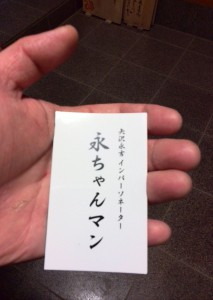 矢沢永吉インパーソネーター
永ちゃんマン